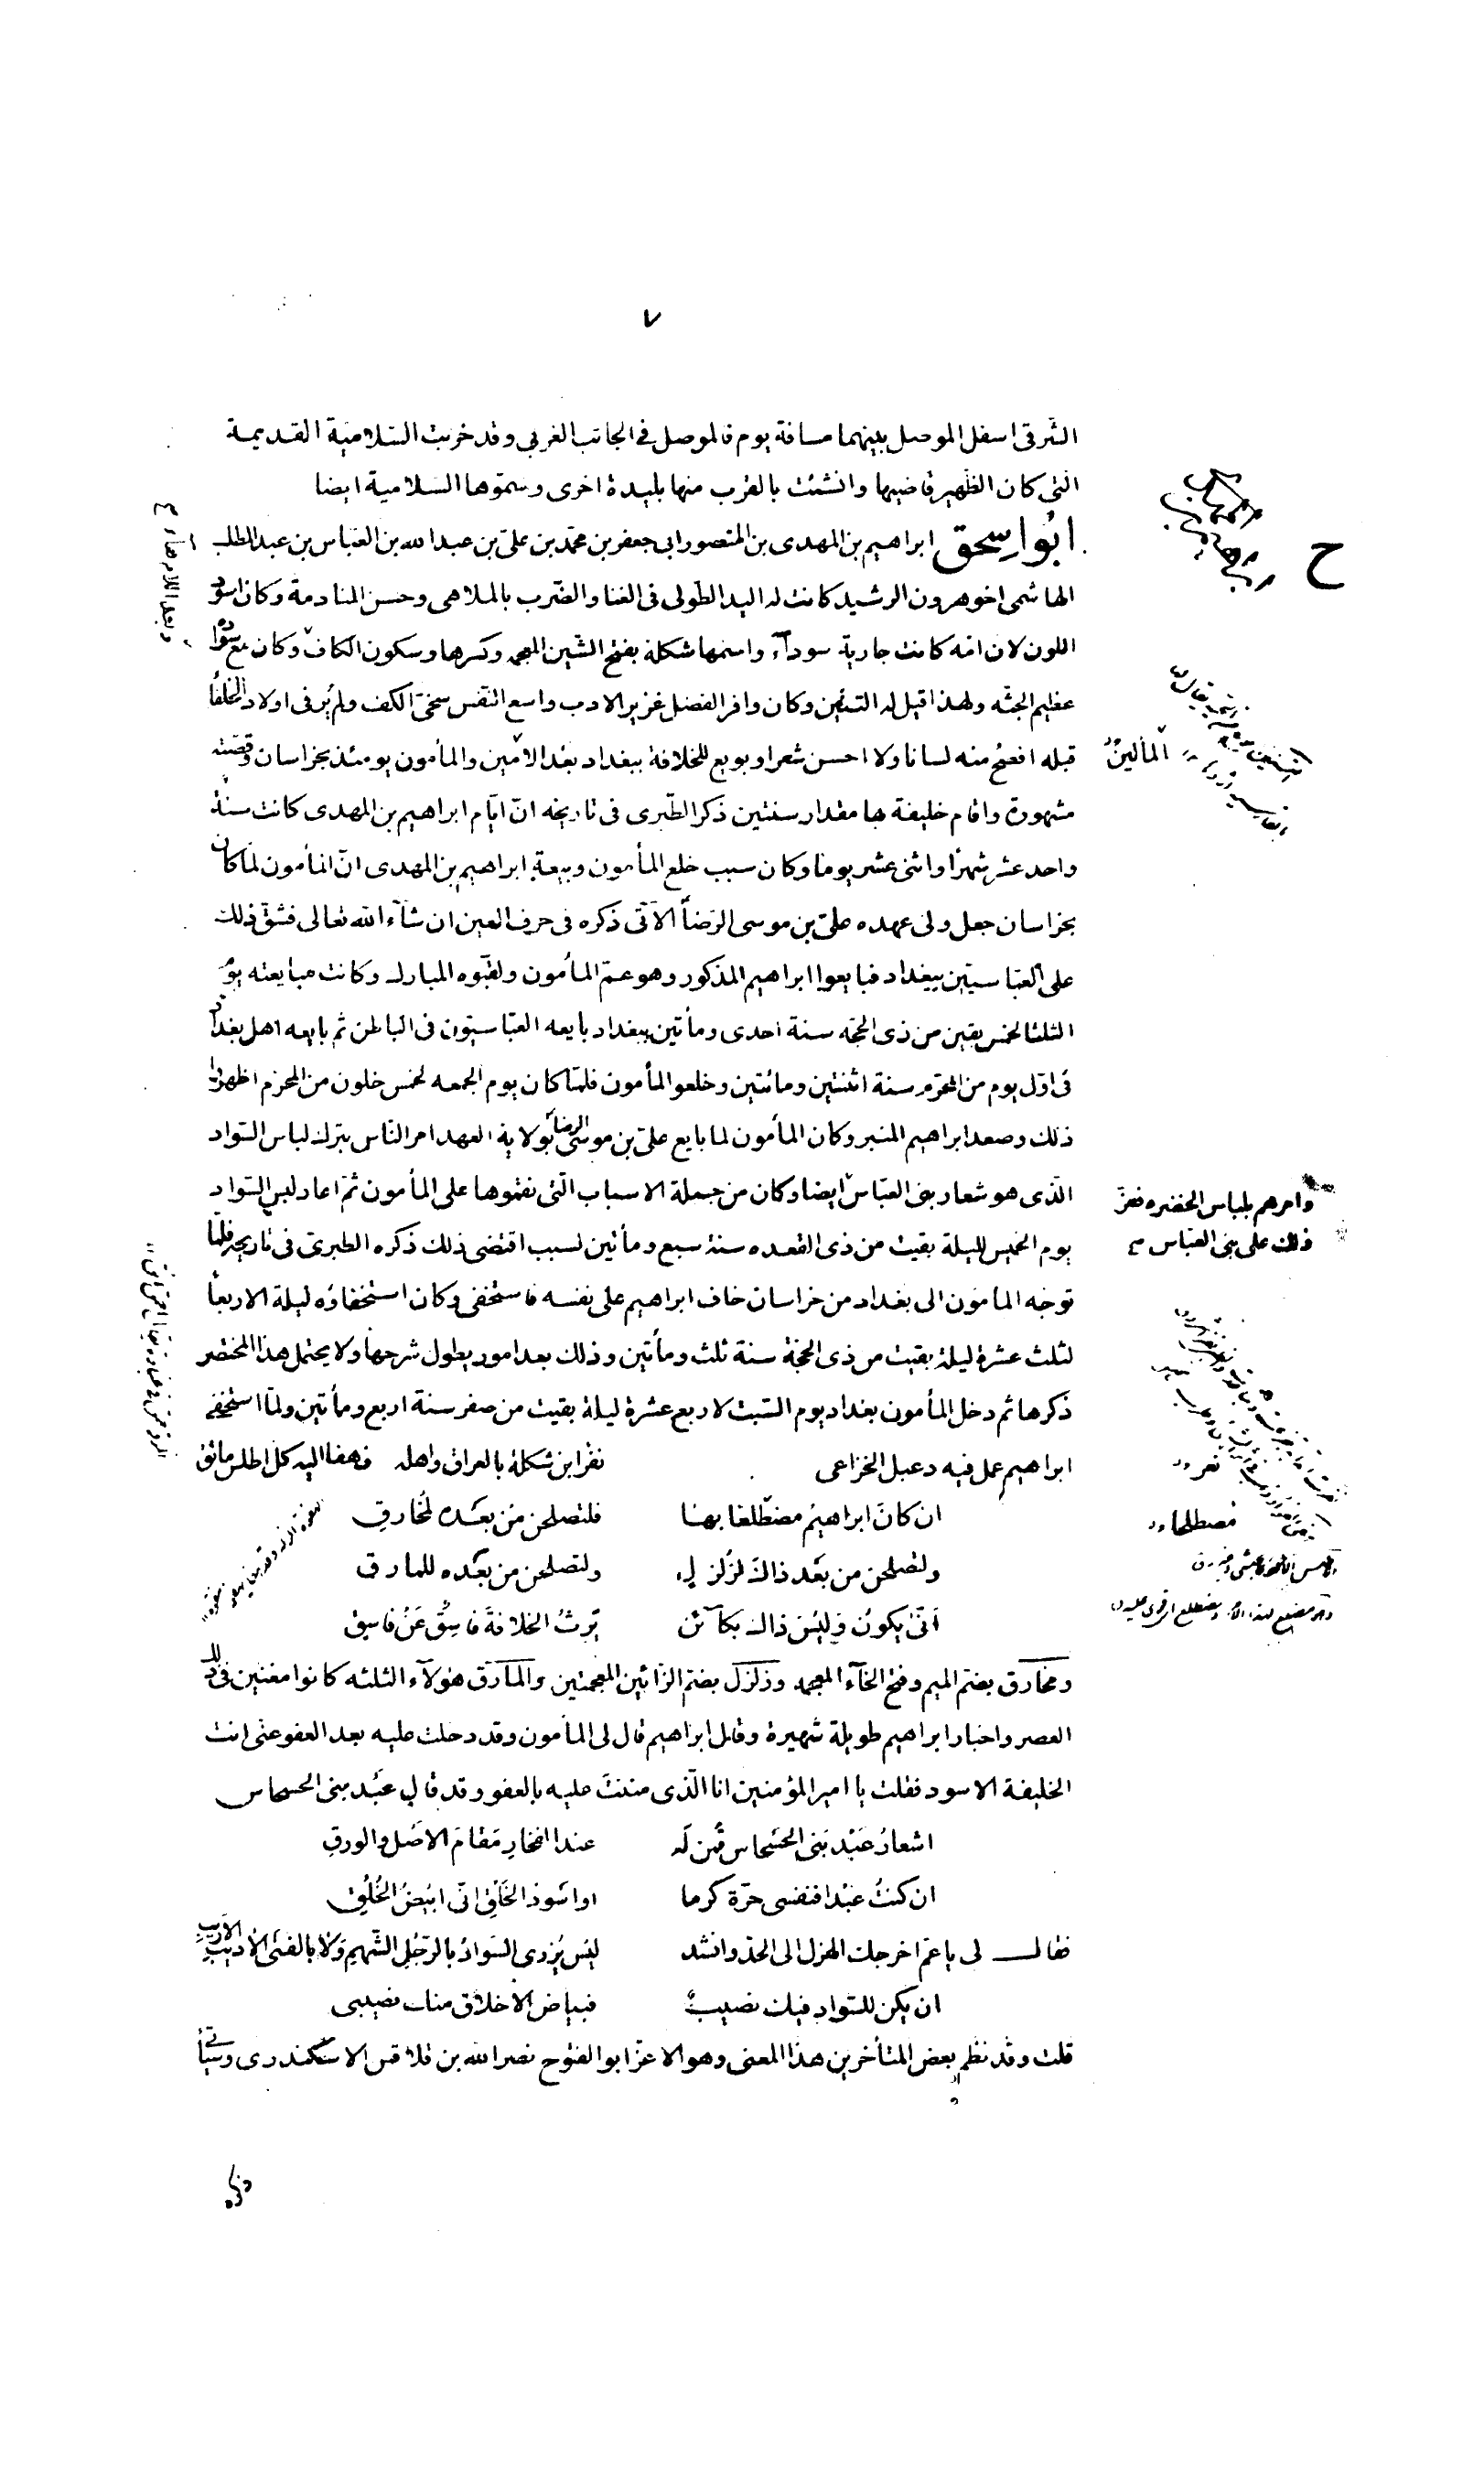 ٧
الشرقى اسفل الموصل بينهما مسافة يوم فالموصل فى الجانب الغربى وقد خربت السلامية القديمة
التى كان الظهير قاضيها وانشئت بالقرب منها بليدة اخرى وسموها السلامية ايضا
ابوا سحق ابراهيم بن المهدى بن المنصور ابى جعفر بن محمد بن على بن عبد الله بن العباس بن عبد المطلب
الهاشمى اخو هرون الرشيد كانت له اليد الطولى فى الغنا والضرب بالملاهى وحسن المنادمة وكان اسود
اللون لان امه كانت جارية سودآء واسمها شكلة بفتح الشين المعجمه وكسرها وسكون الكاف وكان مع سواده
عظيم الجثه ولهذا قيل له التنين وكان وافر الفضل غزير الادب واسع النفس سخى الكف ولم ير فى اولاد الخلفا
قبله افصح منه لسانا ولا احسن شعرا وبويع للخلافة ببغداد بعد الامين والمأمون يومئذ بخراسان وقصته
مشهورة واقام خليفة بها مقدار سنتين ذكر الطبرى فى تاريخه ان ايام ابراهيم بن المهدى كانت سنة
واحد عشر شهرا واثنى عشر يوما وكان سبب خلع المأمون وبيعة ابراهيم بن المهدى ان المأمون لما كان
بخراسان جعل ولى عهده على بن موسى الرضا الآتى ذكره فى حرف العين ان شآء الله تعالى فشق ذلك
على العباسيين ببغداد فبايعوا ابراهيم المذكور وهو عم المأمون ولقبوه المبارك وكانت مبايعته يوم
الثلثا لخمس بقين من ذى الحجه سنة احدى ومأتين ببغداد بايعه العباسيون فى الباطن ثم بايعه اهل بغداد
فى اول يوم من المحرم سنة اثنتين ومائتين وخلعو المأمون فلما كان يوم الجمعه لخمس خلون من المحرم اظهروا
ذلك وصعد ابراهيم المنبر وكان المأمون لما بايع على بن موسى الرضا بولاية العهد امر الناس بترك لباس السواد
الذى هو شعار بنى العباس ايضا وكان من جملة الاسباب التى نقموها على المأمون ثم اعاد لبس السواد
وامرهم بلباس الخضره فعز
ذلك على بنى العباس
يوم الخميس لليلة بقيت من ذى القعده سنة سبع ومأتين لسبب اقتضى ذلك ذكره الطبرى فى تاريخه فلما
توجه المامون الى بغداد من خراسان خاف ابراهيم على نفسه فاستخفى وكان استخفاؤه ليلة الاربعا
لثلث عشرة ليلة بقيت من ذى الحجة سنة ثلث ومأتين وذلك بعد امور يطول شرحها ولا يحتمل هذا المختصر
ذكرها ثم دخل المأمون بغداد يوم السبت لاربع عشرة ليلة بقيت من صفر سنة اربع ومأتين ولما استخفى
ابراهيم عمل فيه دعبل الخزاعى نفر ابن شكلة بالعراق واهله فهفا اليه كل اطلس مائق
ان كان ابراهيم مضطلعا بها فلتصلحن من بعده لمخارق
ولتصلحن من بعد ذاك لزلزل ولتصلحن من بعده للمارق
أنى يكون وليس ذاك بكآئن يرث الخلافة فاسق عن فاسق
ومخارق بضم الميم وفتح الخآء المعجمه وزلزل بضم الزائين المعجمتين والمارق هولآء الثلثه كانوا مغنين فى ذلك
العصر واخبار ابراهيم طويلة شهيرة وقال ابراهيم قال لى المأمون وقد دخلت عليه بعد العفو عنى انت
الخليفة الاسود فقلت يا امير المؤمنين انا الذى مننت عليه بالعفو وقد قال عبد بنى الحسحاس
اشعار عبد بنى الحسحاس قمن له عند الفخار مقام الاصل والورق
ان كنت عبدا فنفسى حرة كرما او اسود الخلق انى ابيض الخلق
فقال لى يا عم اخرجك الهزل الى الجد وانشد ليس يزرى السواد بالرجل الشهم ولا بالفتى الاديب الاريب
ان يكن للسواد فيك نصيب فبياض الاخلاق منك نصيبى
قلت وقد نظم بعض المتأخرين هذا المعنى وهو الاعز ابو الفتوح نصر الله بن قلاقس الاسكندرى وسيأتى
ذكره